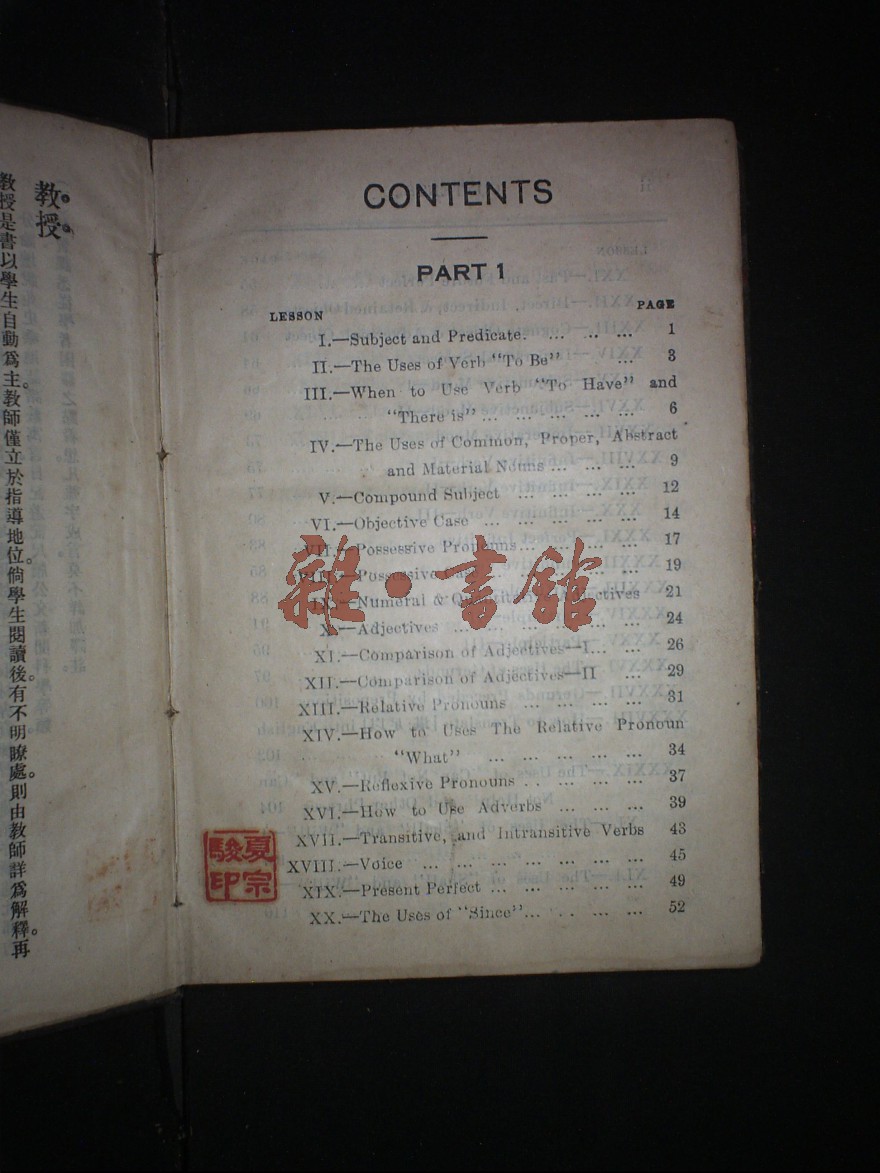 教授
教授是書以學生自動爲主。教師僅立於指導地位。倘學生閱讀後。有不明瞭處。則由教師詳爲解釋。再
CONTENTS
PART 1
LESSON PAGE
I.—Subject and Predicate. ... ... ... 1
II.—The Uses of Verb "To Be" ... ... ... 3
III.—When to Use Verb "To Have" and
"There is" ... ... ... ... ... ... 6
IV.—The Uses of Common, Proper, Abstract
and Material Nouns ... ... ... 9
V.—Compound Subject ... ... ... ... 12
VI.—Objective Case ... ... ... ... ... 14
VII.—Possessive Pronouns... ... ... ... 17
VIII.—Possessive ... ... 19
IX.—Numeral & Adjectives 21
X.—Adjectives ... ... ... ... ... ... 24
XI.—Comparison of Adjectives—I... ... 26
XII.—Comparison of Adjectives—II ... 29
XIII.—Relative Pronouns ... ... ... ... 31
XIV.—How to Uses The Relative Pronoun
"What" ... ... ... ... ... 34
XV.—Reflexive Pronouns ... ... ... ... 37
XVI.—How to Use Adverbs ... ... ... 39
XVII.—Transitive, and Intransitive Verbs 43
XVIII.—Voice ... ... ... ... ... ... ... 45
XIX.—Present Perfect ... ... ... ... ... 49
XX.—The Uses of "Since"... ... ... ... 52
雜·書館
夏宗駿印